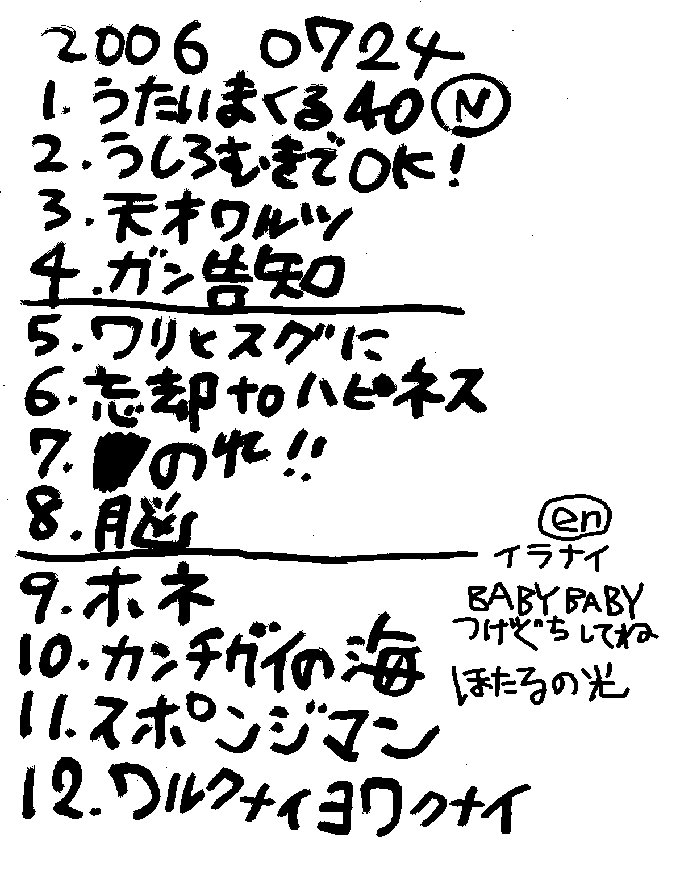 2006 0724
1. うたいまくる40 N
2. うしろむきでOK!
3. 天才ワルツ
4. ガン告知
5. ワリとスグに
6. 忘却toハピネス
7. のれ!!
8. 脳
9. ホネ
10. カンチガイの海
11. スポンジマン
12. ワルクナイヨワクナイ
en
イラナイ
BABY BABY
つけぐちしてね
ほたるの光